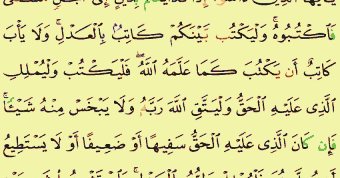 فَٱكْتُبُوهُ ۚ وَلْيَكْتُب بَّيْنَكُمْ كَاتِبٌۢ بِٱلْعَدْلِ ۚ وَلَا يَأْبَ
كَاتِبٌ أَن يَكْتُبَ كَمَا عَلَّمَهُ ٱللَّهُ ۚ فَلْيَكْتُبْ وَلْيُمْلِلِ
ٱلَّذِى عَلَيْهِ ٱلْحَقُّ وَلْيَتَّقِ ٱللَّهَ رَبَّهُۥ وَلَا يَبْخَسْ مِنْهُ شَيْـًٔا ۚ
فَإِن كَانَ ٱلَّذِى عَلَيْهِ ٱلْحَقُّ سَفِيهًا أَوْ ضَعِيفًا أَوْ لَا يَسْتَطِيعُ